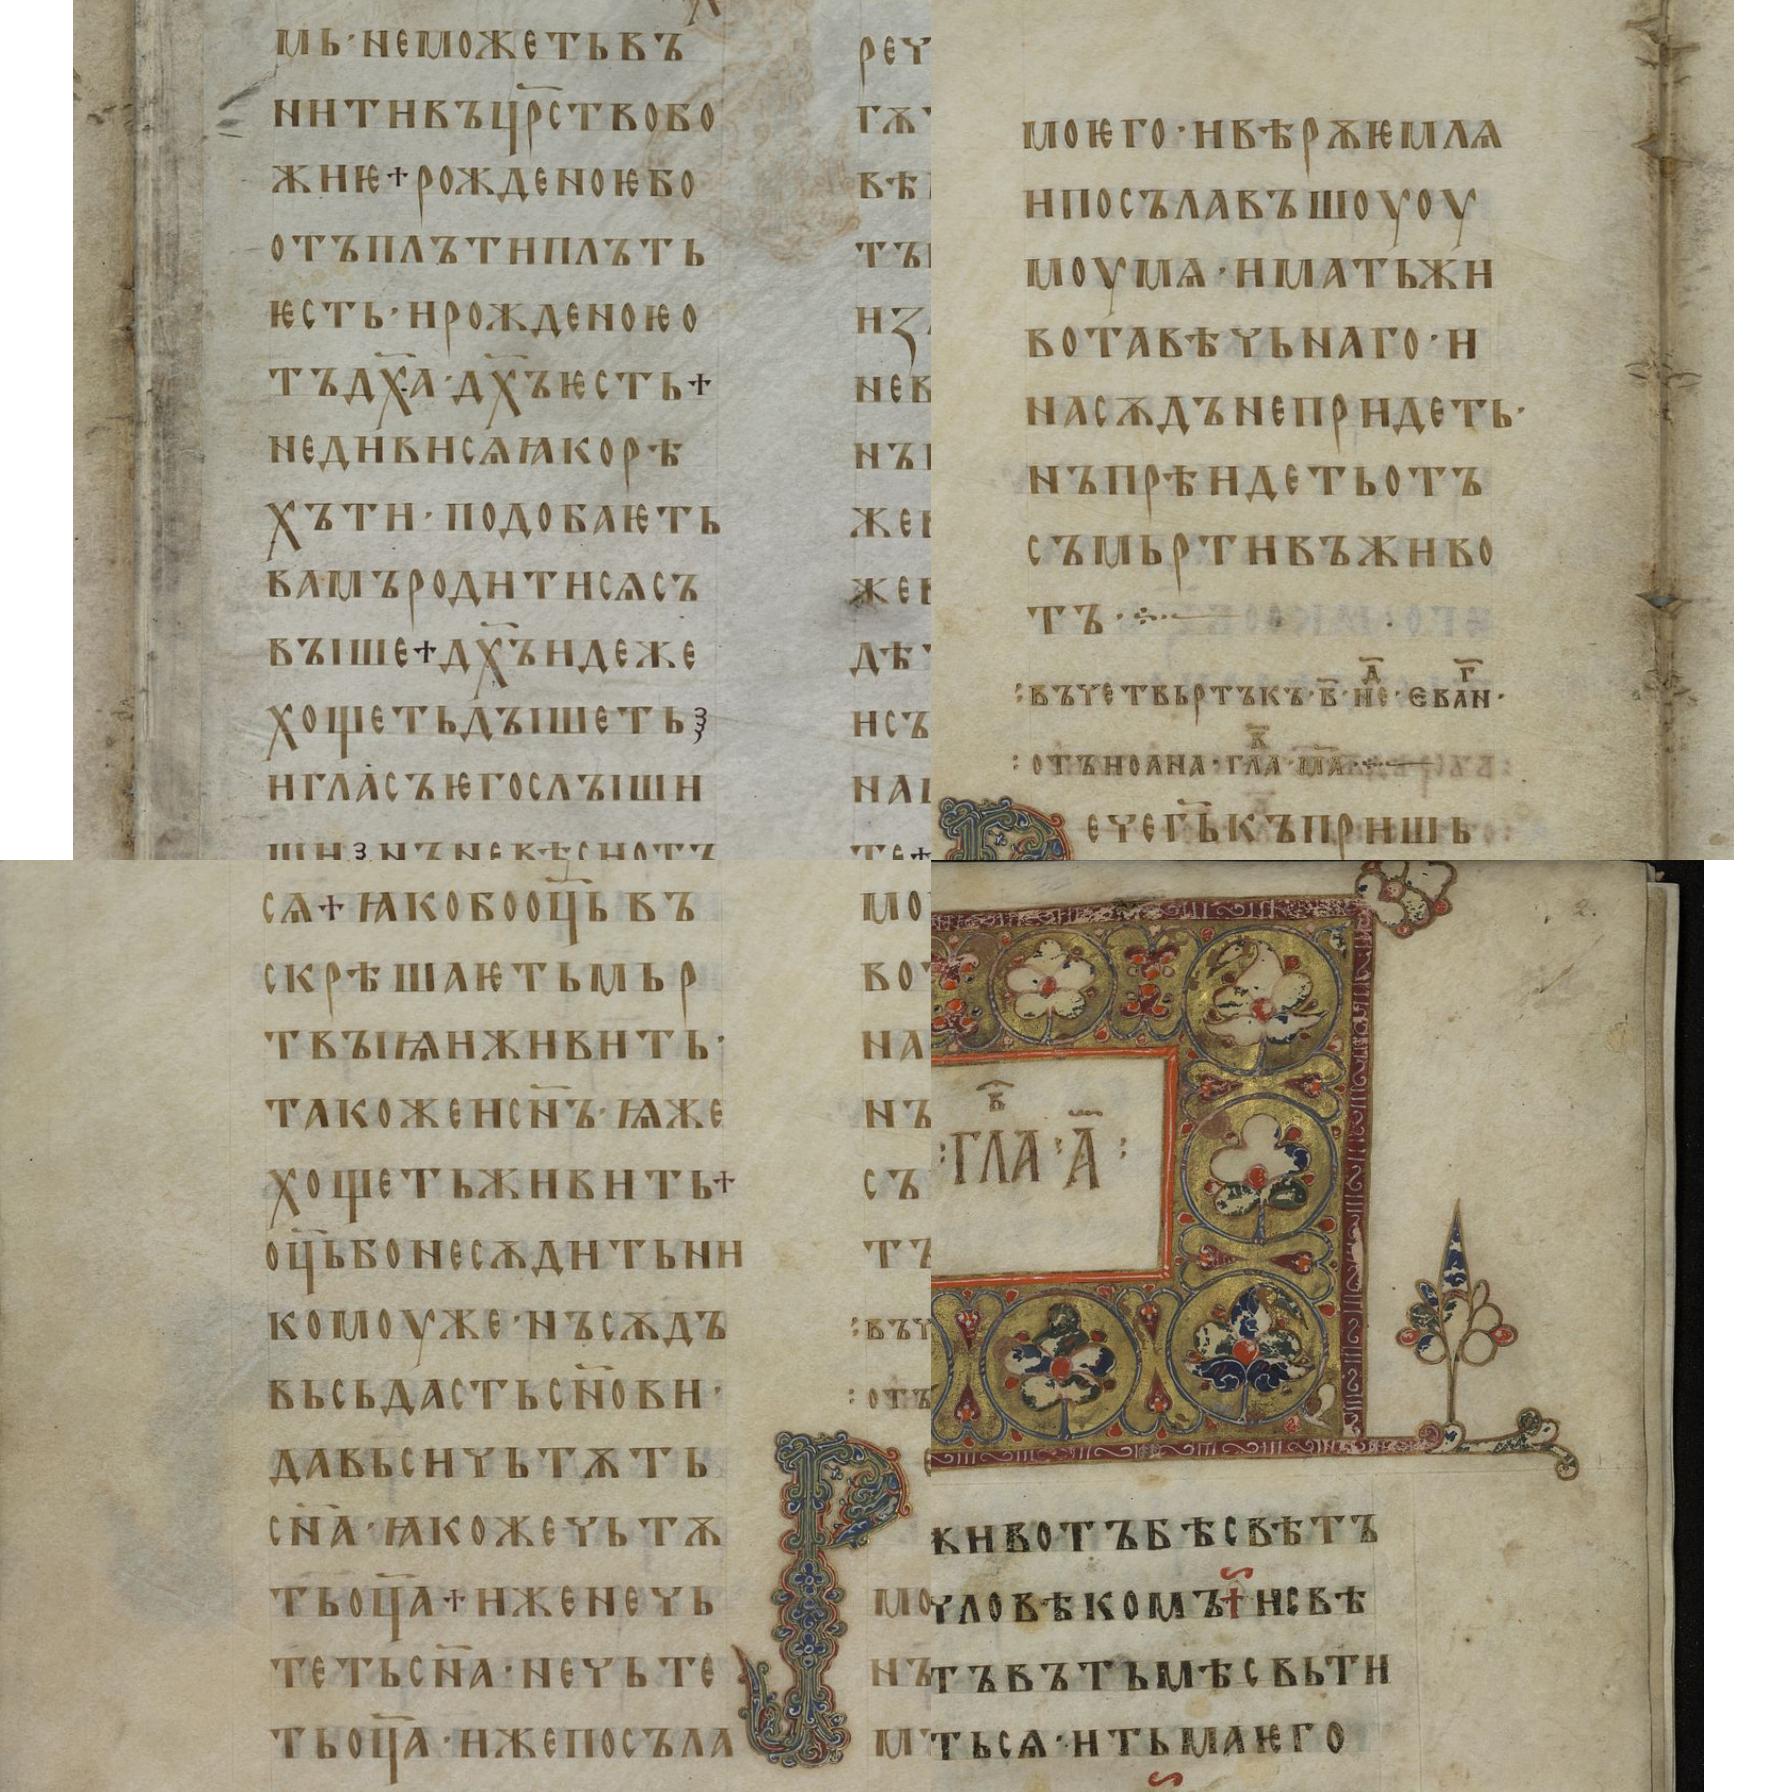 мь·неможетьвъ
нитивъцр҃ствобо
жиѥ+рожденоѥбо
отъплътиплъть
ѥсть·ирожденоѥо
тъдх҃а·дх҃ъѥсть+
недивисѧꙗкорѣ
хътн·подобаѥть
вамъродитисѧсъ
въіше+дх҃ъидеже
хощетьдъішеть
игласъѥгослъіши
шинъневѣсиотъ
моѥго·ивѣрѫѥмлѧ
ипосълавъшоуоу
моумѧ·иматьжи
вотавѣчьнаго·и
насѫдънепридеть·
нъпрѣидетьотъ
съмьртивъживо
тъ·
:въчетвьртъкъ·в҃·не·а҃·еван·г҃·
:отъиоана·гла·к҃·м҃а·
ечегь҃къпришь
сѧ+ꙗкобооц҃ьвъ
скрѣшаѥтьмьр
твъіѩиживить·
такожеисн҃ъ·ѩже
хощетьживить+
оц҃ьбонесѫдитьни
комоуже·нъсѫдъ
вьсьдастьсн҃ови·
давьсичьтѫть
сн҃а·ꙗкожечьтѫ
тьоц҃а+иженечь
тетьсн҃а·нечьте
тьоц҃а·ижепосъла
:гла·в҃·а҃:
животъбѣсвѣтъ
чловѣкомъ+исвѣ
тъвътьмѣсвьти
тьсѧ·итьмаѥго